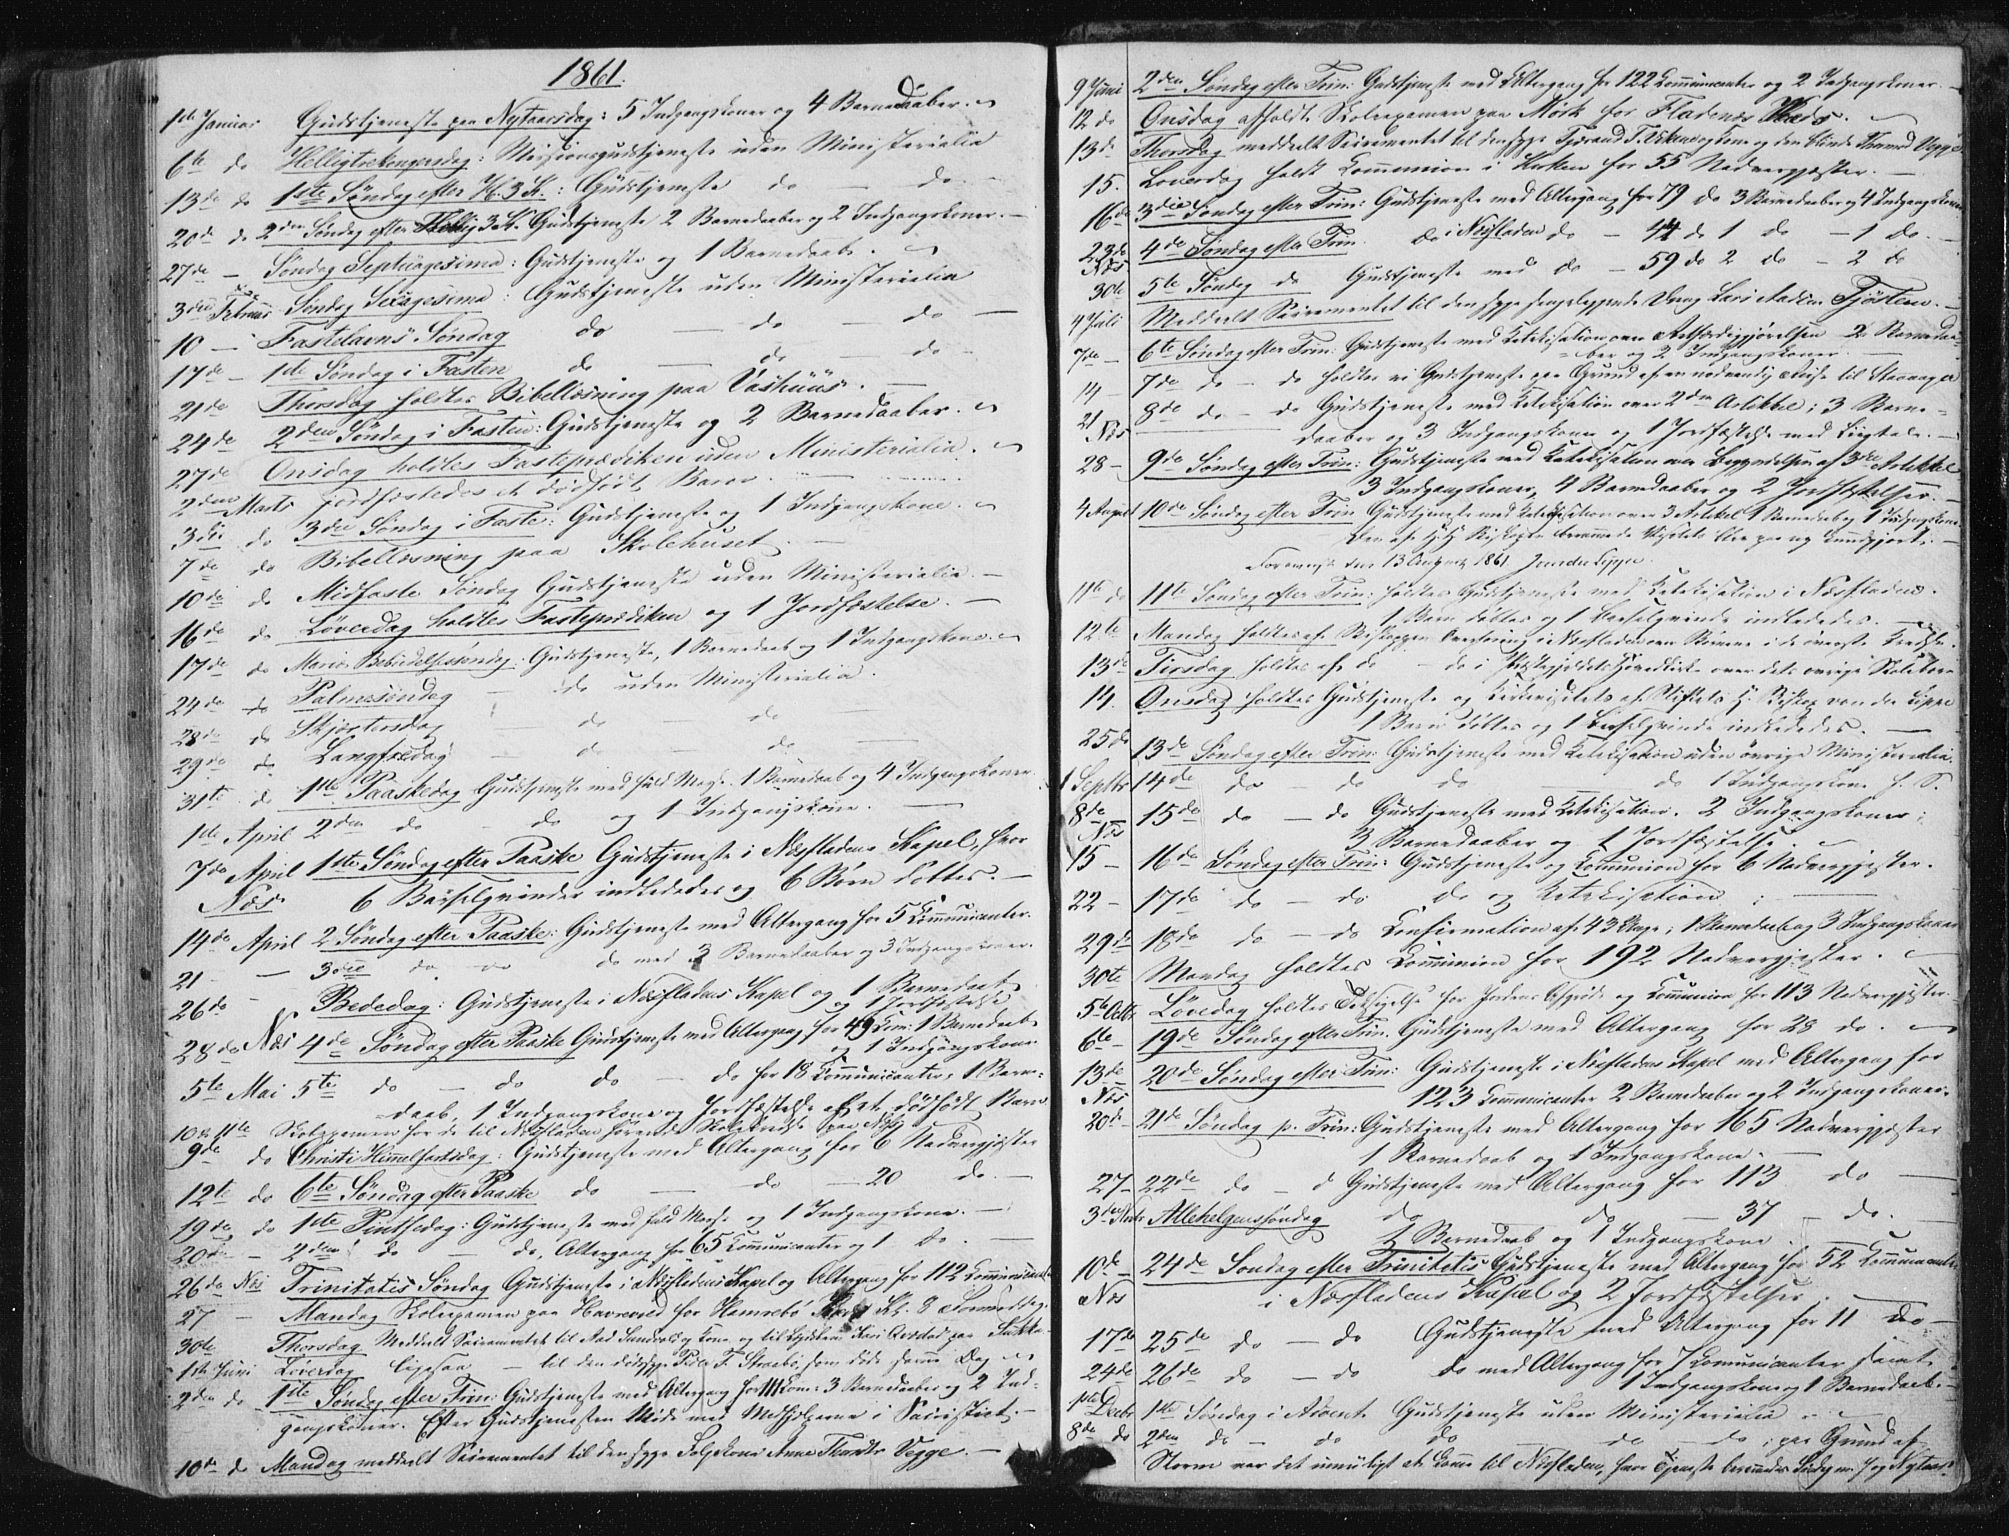 1861.
1ste Januar Gudstjeneste paa Nytaarsdag: 5 Indgangskoner og 4 Barnedaaber.
6te do Helligtrekongersdag: Missionsgudstjeneste uden Ministerialia
13de do 1ste Søndag efter H. 3 K.: Gudstjeneste do — do —
20de do 2den Søndag efter Hellig 3 K. Gudstjeneste 2 Barnedaaber og 2 Indgangskoner. —
27de — Søndag Septuagesima: Gudstjeneste og 1 Barnedaab.
3die Februar Søndag Sexagesima: Gudstjeneste uden Ministerialia
10 — Fastelavns Søndag do — do — do —
17de — 1ste Søndag i Fasten do — do — do —
21de Thorsdag holdtes Bibellæsning paa Vashuus. —
24de 2den Søndag i Fasten: Gudstjeneste og 2 Barnedaaber.
27de Onsdag holdtes Fasteprædiken uden Ministerialia.
2den Marts jordfæstedes et dødfødt Barn.
3die do 3die Søndag i Faste: Gudstjeneste og 1 Indgangskone.
7de do Bibellæsning paa Skolehuset. —
10de do Midfaste Søndag Gudstjeneste uden Ministerialia. —
16de do Løverdag holdtes Fasteprædiken og 1 Jordfæstelse. —
17de do Mariæ Bebudelsessøndag: Gudstjeneste, 1 Barnedaab og 1 Indgangskone.
24de do Palmesøndag — do uden Ministerialia.
28de do Skjærtorsdag — do — do —
29de do Langfredag — do — do —
31te do 1ste Paaskedag Gudstjeneste med fuld Messe. 1 Barnedaab og 4 Indgangskoner.
1ste April 2den do — do og 1 Indgangskone. —
7de April 1ste Søndag efter Paaske Gudstjeneste i Næsfladens Kapel, hvor
Næs. 6 Barselqvinder indlededes og 6 Børn døbtes. —
14de April 2 Søndag efter Paaske: Gudstjeneste med Altergang for 5 Communicanter.
21 — 3die do do do med 3 Barnedaaber og 3 Indgangskoner.
26de — Bededag: Gudstjeneste i Næsfladens Kapel og 1 Barnedaab
og 1 Jordfæstelse
28de Næs 4de Søndag efter Paaske Gudstjeneste med Altergang for 49 Com: 1 Barnedaab
og 1 Indgangskone
5te Mai 5te do — do do — do for 18 Communicanter, 1 Barne-
daab, 1 Indgangskone og Jordfæstelse af et dødfødt Barn
10 & 11te Skoleexamen for de til Næsfladen hørende Skolekredse paa Næs
9de do Christi Himmelfartsdag: Gudstjeneste med Altergang for 6 Nadvergjæster
12te do 6te Søndag efter Paaske do — do — 20 do. —
19de do 1ste Pintsedag: Gudstjeneste med fuld Messe og 1 Indgangskone. —
20de — 2den do — do, Altergang for 65 Communicanter og 1 do. —
26de Næs Trinitatis Søndag Gudstjeneste i Næsfladens Kapel og Altergang for 112 Communicanter
27 — Mandag Skoleexamen paa Havreved for Hamrebø Kl. 8 Formiddag.
30te Thorsdag meddeelt Sacramentet til
1ste Juni Løverdag ligesaa — til den dødssyge Peder T. Straabø, som døde samme Dag
2den do 1ste Søndag efter Trin: Gudstjeneste med Altergang for 111 Com: 3 Barnedaaber og 2 Ind-
gangskoner. Efter Gudstjenesten Møde med Medhjelperne i Sacristiet. —
10de do Mandag meddeelt Sacramentet til den syge Anna Thordtr. Vegge. —
9 Juni 2den Søndag efter Trin: Gudstjeneste med Altergang for 122 Communicanter og 2 Indgangskoner. —
12 do Onsdag afholdt Skoleexamen paa Mosk for Fladens Kreds.
13de Thorsdag meddeelt Sacramentet til den syge og den blinde Vegge
15. Løverdag holdt Communion i Kirken for 55 Nadvergjæster. —
16de 3die Søndag efter Trin: Gudstjeneste med Altergang for 79 do 3 Barnedaaber og 4 Indgangskoner
23de 4de Søndag efter Trin. do i Næsfladen do — 44 do 1 do — 1 do. —
Næs
30te 5te Søndag do Gudstjeneste med do — 59 do 2 do — 2 do
4 Juli Meddeelt Sacramentet til den syge sengeliggende Tjøsten. —
7de — 6te Søndag efter Trin: Gudstjeneste med Katekisation over Retfærdiggjørelsen 2 Barnedaa-
ber og 2 Indgangskoner. —
14 — 7de do — do holdtes ei Gudstjeneste paa Grund af en nødvendig Reise til Stavanger
21 8de do — do Gudstjeneste med Katekisation over 2den Artikkel; 3 Barne-
Næs daaber og 3 Indgangskoner og 1 Jordfæstelse med Liigtale. —
28 — 9de Søndag efter Trin: Gudstjeneste med Katekisation over Begyndelsen af 3die Artikkel
3 Indgangskoner, 4 Barnedaaber og 2 Jordfæstelser. —
4 August 10de Søndag efter Trin Gudstjeneste med Katekisation over 3 Artikel 1 Barnedaab og 1 Indgangskone.
Den af Hr. Biskopen berammede Visitats blev paa ny kundgjort. —
Foreviist den 13 August 1861 J. von der Lippe
11te do 11te Søndag efter Trin: holdtes Gudstjeneste med Katekisation i Næsfladen.
1 Barn døbtes og 1 Barselqvinde indlededes. —
12te Mandag holdtes af Biskoppen Overhøring i Næsfladen over Børnene i de øverste Kredse.
13de Tirsdag holdtes af do — do i Præstegjeldets Hovedkirke over dets øvrige Skolebørn
14. Onsdag holdtes Gudstjeneste og Kirkevisitats af Stiftets Hr. Biskop von der Lippe
1 Barn døbtes og 1 Barselqvinde indlededes. —
25 do 13de Søndag efter Trin: Gudstjeneste med Katekisation uden øvrige Ministerialia.
1 Septbr 14de do — do do — do 1 Indgangskone f. S.
8de 15de do — do Gudstjeneste med Katekisation. 2 Indgangskoner;
Næs 3 Barnedaaber og 1 Jordfæstelse.
15 — 16de Søndag efter Trin: Gudstjeneste og Communion for 6 Nadvergjæster.
22 — 17de do — do. do og Katekisation: —
29de 18de do — do Confirmation af 43 Unge; 1 Barnedaab og 3 Indgangskoner
30te Mandag holdtes Communion for 192 Nadvergjæster.
5te Octbr Løverdag holdtes Taksigelse for Jordens Afgrøde og Communion for 113 Nadvergjæster.
6te — 19de Søndag efter Trin. Gudstjeneste med Altergang for 28 do.
13de 20de Søndag efter Trin: Gudstjeneste i Næsfladens Kapel med Altergang for
Næs 123 Communicanter 2 Barnedaaber og 2 Indgangskoner.
20de — 21de Søndag p. Trin: Gudstjeneste med Altergang for 165 Nadvergjæster
1 Barnedaab og 1 Indgangskone. —
27 — 22de do — d Gudstjeneste med Altergang for 113 do —
3die Novbr Allehelgenssøndag do — do — 37 do. —
1 Barnedaab og 1 Indgangskone.
10de — 24de Søndag efter Trinitatis Gudstjeneste med Altergang for 52 Communicanter
Næs i Næsfladens Kapel og 2 Jordfæstelser. —
17de 25de do — do Gudstjeneste med Altergang for 11 do —
24de 26de do — do do med Altergang for 7 Communicanter samt
1 Indgangskone og 1 Barnedaab. —
1ste Decbr 1ste Søndag i Advent Gudstjeneste uden Ministerialia
8de do 2den do — do do — do — do; paa Grund af
Storm var det umuligt at komme til Næsfladen, hvor Tjeneste berammedes Søndag m. J. og Nytaar.